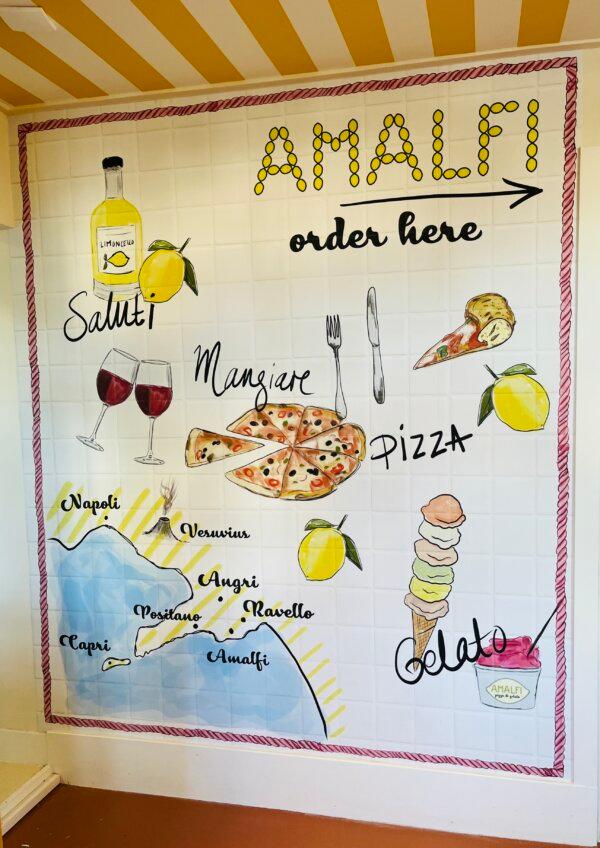 AMALFI
order here
LIMONCELLO
Saluti
Mangiare
PIZZA
Napoli
Vesuvius
Angri
Positano
Ravello
Capri
Amalfi
Gelato
AMALFI
pizza & gelato